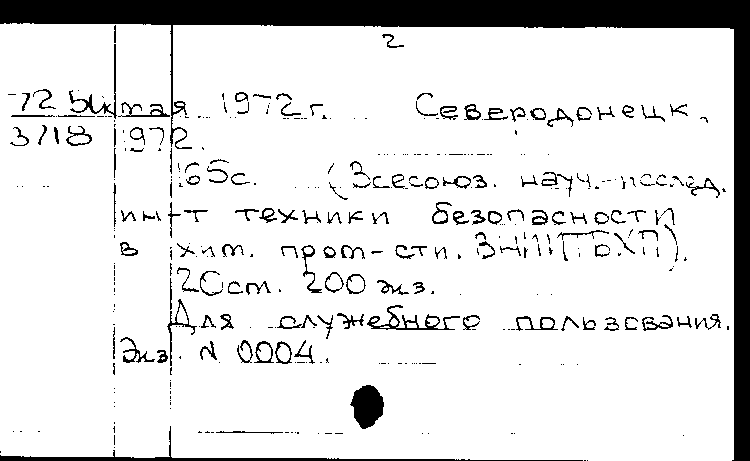 2
72 мая 1972г. Северодонецк,
3718 1972.
165с. (Всесоюз. науч.-исслед.
ин-т техники безопасности
в хим. пром-сти. ВНИИТБХП).
20см. 200 экз.
Для служебного пользования.
Экз. N 0004.